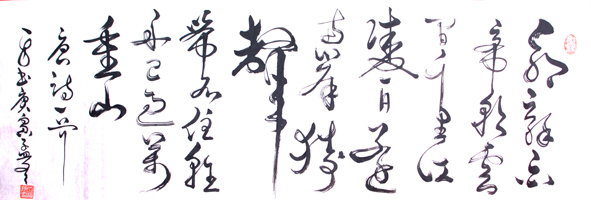 朝辞白
帝彩雲
间千里江
陵一日还
两岸猿
声
啼不住轻
舟已过萬
重山
唐诗一首
书庚寅孟